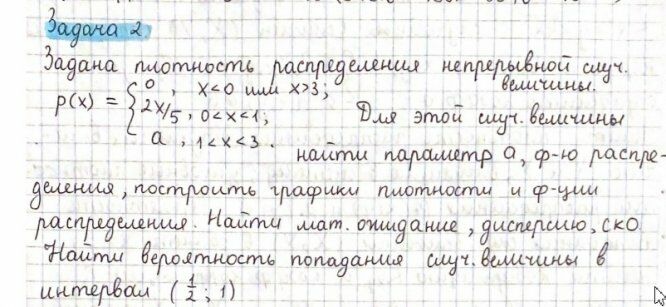 Задача 2
Задана плотность распределения непрерывной случ.
величины.
p(x) = { 0, x<0 или x>3;
2x/5, 0<x<1; Для этой случ. величины
a, 1<x<3. найти параметр a, ф-ю распре-
деления, построить графики плотности и ф-ции
распределения. Найти мат. ожидание, дисперсию, ско
Найти вероятность попадания случ. величины в
интервал (1/2; 1)